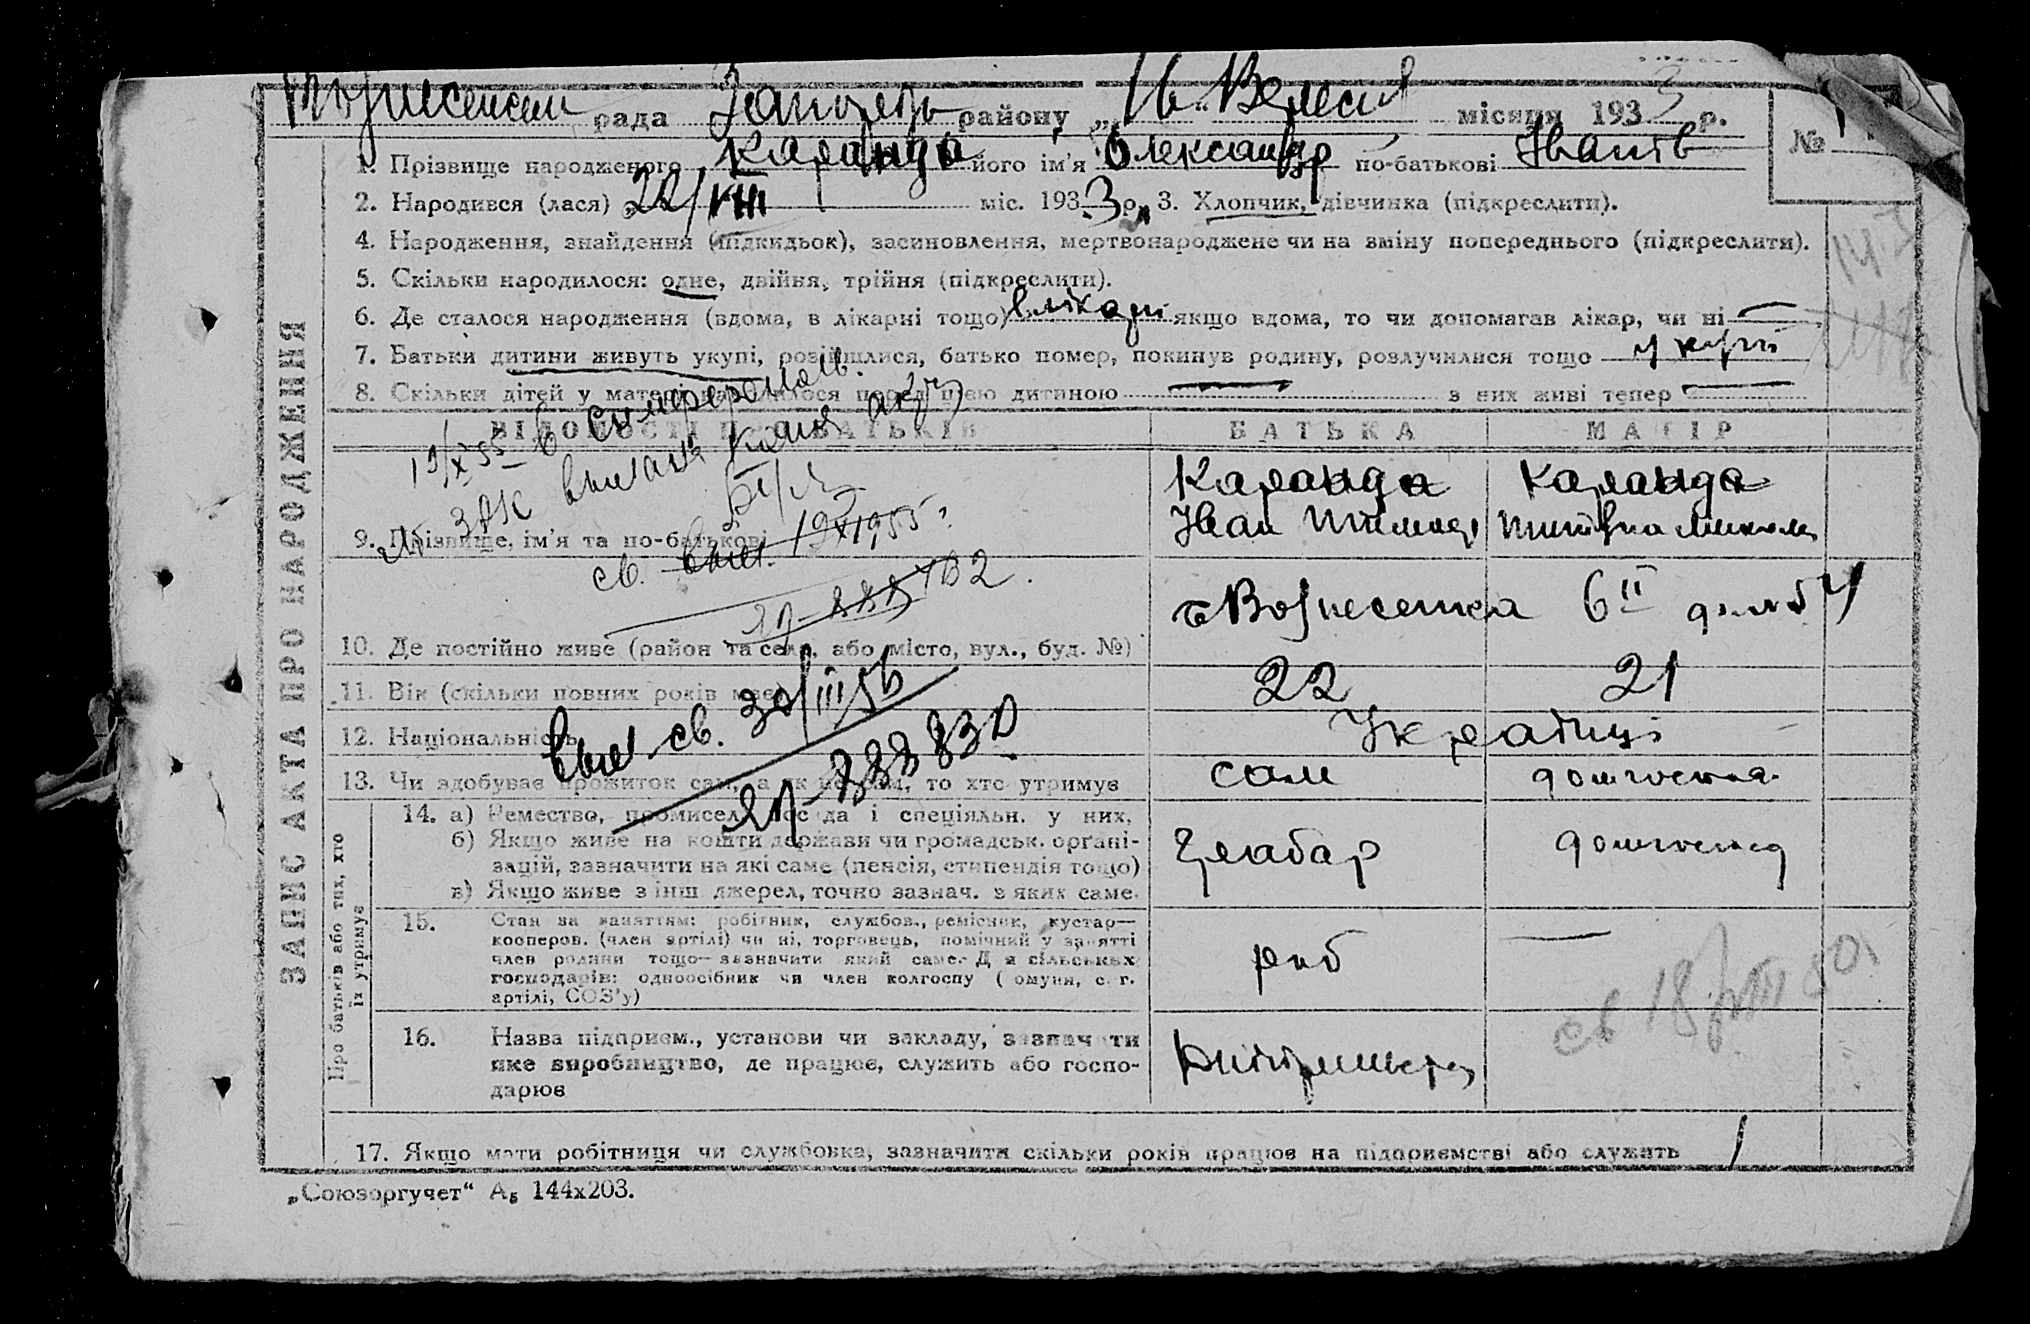 рада Запоріжь району „16“ Вересня місяця 1933 р. №
1. Прізвище народженого Каранда його ім'я Олександр по-батькові Іванів
2. Народився (лася) „22/VIII міс. 1933 р. 3. Хлопчик, дівчинка (підкреслити).
4. Народження, знайдення (підкидьок), засиновлення, мертвонароджене чи на зміну попереднього (підкреслити).
5. Скільки народилося: одне, двійня, трійня (підкреслити).
6. Де сталося народження (вдома, в лікарні тощо) в лікарні якщо вдома, то чи допомагав лікар, чи ні —
7. Батьки дитини живуть укупі, розійшлися, батько помер, покинув родину, розлучилися тощо укупі
8. Скільки дітей у матері народилося перед цією дитиною — з них живі тепер —
ВІДОМОСТІ ПРО БАТЬКІВ БАТЬКА МАТІР
19/X 55 в Симферополь.
ЗАК выслана копия акту
9. Прізвище, ім'я та по-батькові
Каранда Каранда
Іван
св. выт. 19/XI 1955 г.
10. Де постійно живе (район та село, або місто, вул., буд. №)
Вознесенка 6
11. Вік (скільки повних років має) 22 21
выт св. 30/III 56
12. Національність Українці
888830
13. Чи здобуває прожиток сам, а як не сам, то хто утримує сам домгоспод.
14. а) Ремество, промисел, посада і спеціяльн. у них,
б) Якщо живе на кошти держави чи громадськ. органі-
зацій, зазначити на які саме (пенсія, стипендія тощо)
в) Якщо живе з інш джерел, точно зазнач. з яких саме.
домгоспод
15. Стан за заняттям: робітник, службов., ремісник, кустар—
кооперов. (член артілі) чи ні, торговець, помічний у занятті
член родини тощо—зазначити який саме. Для сільських
господарів: одноосібник чи член колгоспу (комуни, с. г.
артілі, СОЗ'у)
роб —
св 18/VIII 80.
16. Назва підприєм., установи чи закладу, зазначити
яке виробництво, де працює, служить або госпо-
дарює
17. Якщо мати робітниця чи службовка, зазначити скільки років працює на підприємстві або служить
ЗАПИС АКТА ПРО НАРОДЖЕННЯ
Про батьків або тих, хто
їх утримує
„Союзоргучет“ А5 144х203.